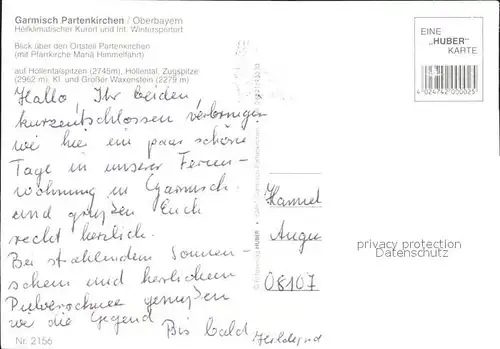 Garmisch Partenkirchen / Oberbayern
Heilklimatischer Kurort und Int. Wintersportort
Blick über den Ortsteil Partenkirchen
(mit Pfarrkirche Mariä Himmelfahrt)
auf Höllentalspitzen (2745m), Höllental, Zugspitze
(2962 m), Kl. und Großer Waxenstein (2279 m)
EINE
„HUBER"
KARTE
4 024742 000025
Hallo, Ihr beiden
kurzentschlossen verbringen
wir hier ein paar schöne
Tage in unserer Ferien-
wohnung in Garmisch
und grüßen Euch
recht herzlich.
Bei strahlendem Sonnen-
schein und herrlichem
Pulverschnee genießen
wir die Gegend
Bis bald
08107
privacy protection
Datenschutz
Nr. 2156